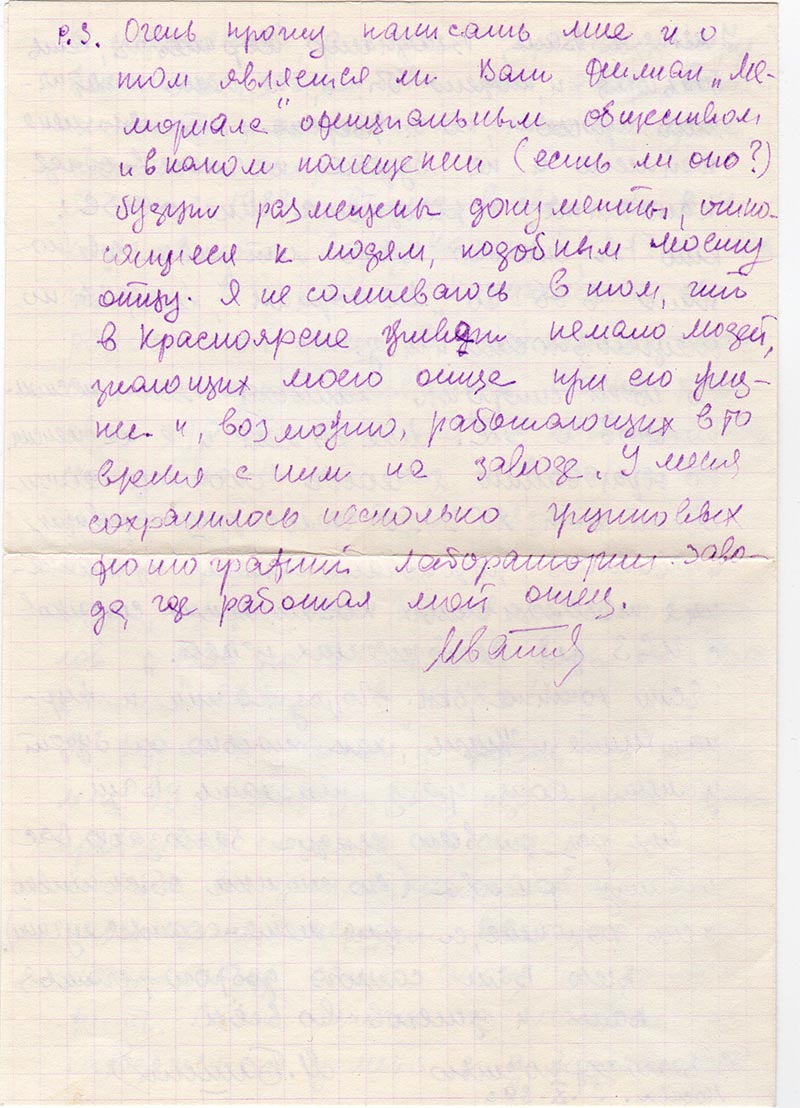 P.S. Очень прошу написать мне и о
том является ли Ваш филиал „Ме-
мориала" официальным обществом
и в каком помещении (есть ли оно?)
будут размещены документы, отно-
сящиеся к людям, подобным моему
отцу. Я не сомневаюсь в том, что
в Красноярске живет немало людей,
знающих моего отца при его жиз-
ни и, возможно, работающих в то
время с ним на заводе. У меня
сохранилось несколько групповых
фотографий лаборатории заво-
да, где работал мой отец.